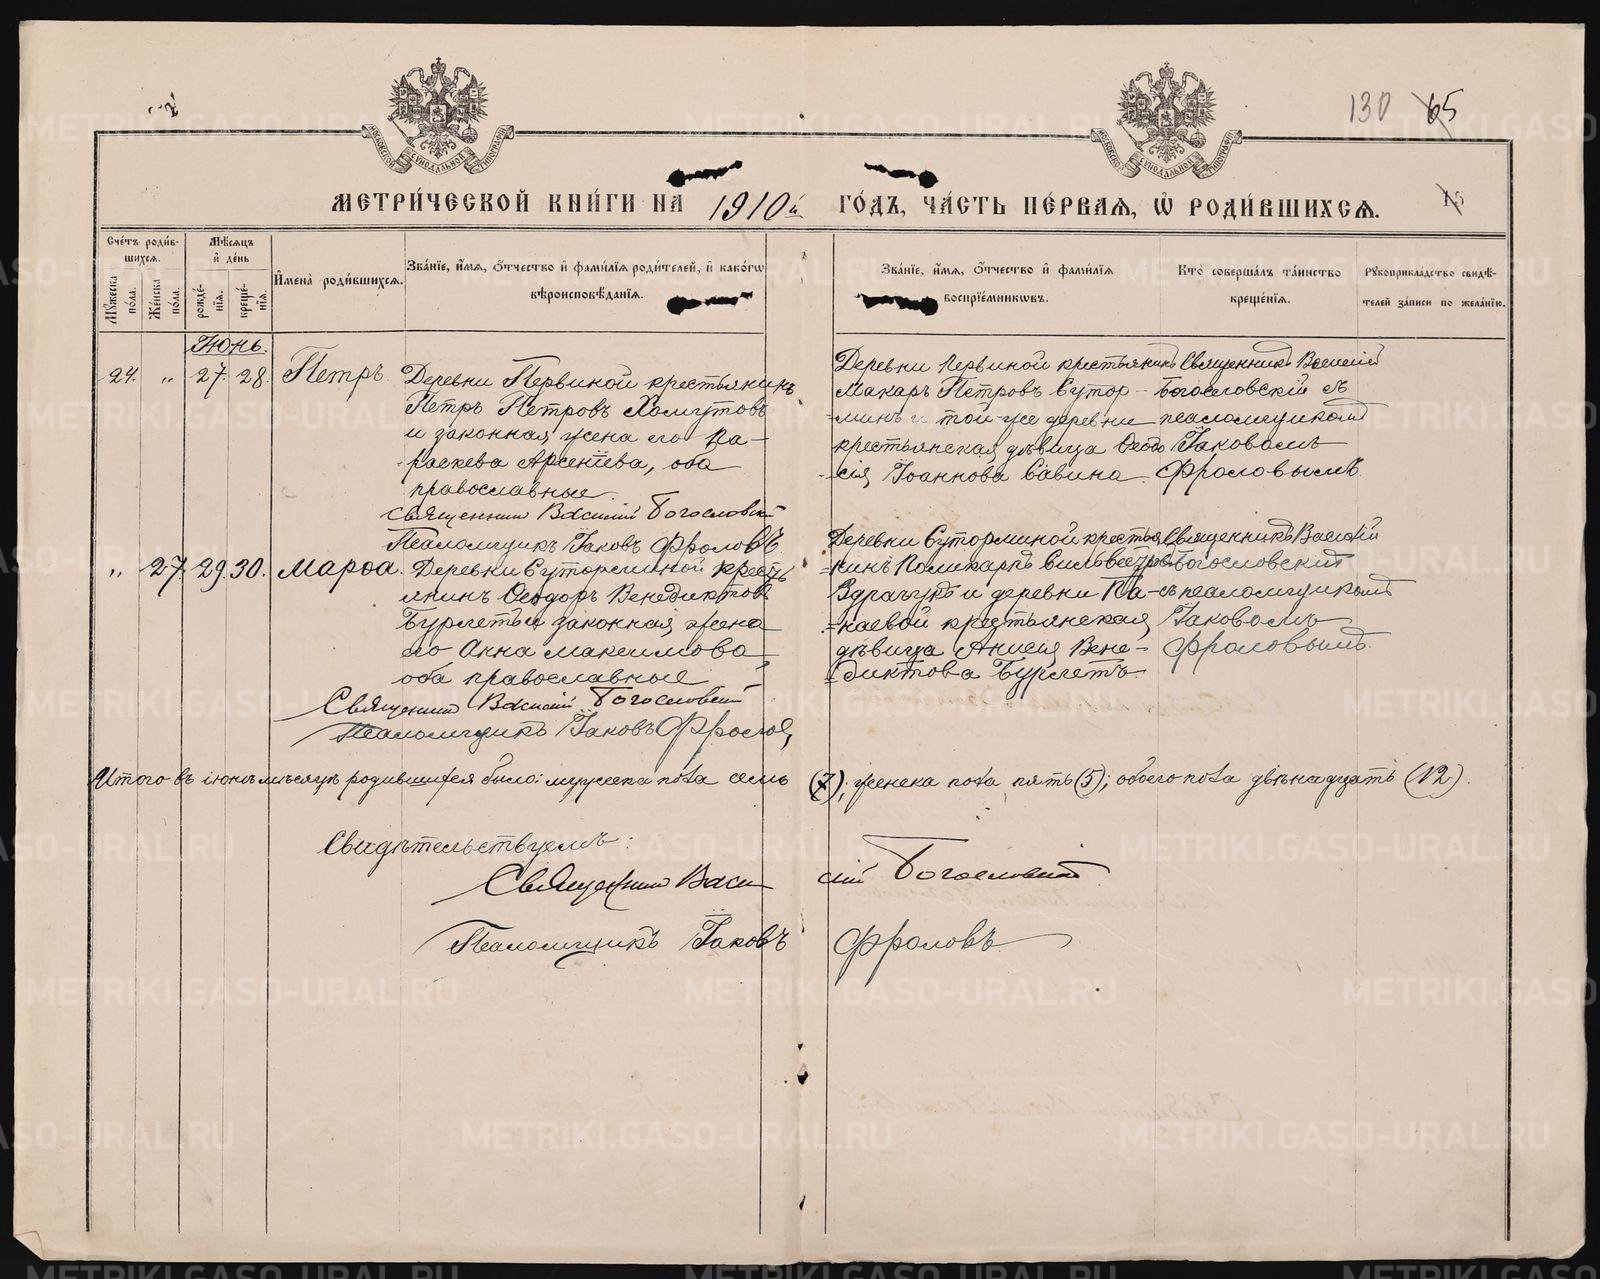 130 65
МЕТРИ́ЧЕСКОЙ КНИ́ГИ НА 1910й ГО́ДЪ, ЧА́СТЬ ПЕ́РВАЯ, Ѡ҆ РОДИ́ВШИХСЯ.
15
Сче́тъ роди́в-
шихся.
Мꙋ́жеска по́ла.
Же́нска по́ла.
Мѣ́сяцъ
и҆ де́нь
рожде́-
нія.
креще́-
нія.
И҆мена̀ роди́вшихся.
Зва́нїе, и҆́мя, ѻ҆́тчество и҆ фами́лїя роди́телей, и҆ како́гѡ
вѣроисповѣ́данїя.
Зва́нїе, и҆́мя, ѻ҆́тчество и҆ фами́лїя
воспрїе́мникѡвъ.
Кто̀ соверша́лъ та́инство
креще́нїя.
Рꙋкоприкла́дство свидѣ́-
телей за́писи по жела́нїю.
Іюнь.
24. „ 27. 28. Петръ
Деревни Первиной крестьянинъ
Петръ Петровъ Хомутовъ
и законная жена его Па-
раскева Арсеніева, оба
православные.
Священникъ Василій Богословскій
Псаломщикъ Іаковъ Фроловъ
Деревни Первиной крестьянинъ
Макаръ Петровъ Сутор-
минъ и той-же деревни
крестьянская дѣвица Ѳеодо-
сія Іоаннова Савина.
Священникъ Василій
Богословскій съ
псаломщикомъ
Іаковомъ
Фроловымъ.
„ 27. 29. 30. Марѳа.
Деревни Суторминой кресть-
янинъ Ѳеодоръ Венедиктовъ
Бурлетъ и законная жена
его Анна Максимова,
оба православные
Священникъ Василій Богословскій
Псаломщикъ Іаковъ Фроловъ
Деревни Суторминой крестья-
нинъ Поликарпъ Сильвестровъ
и деревни Па-
наевой крестьянская
дѣвица Анисія Вене-
диктова Бурлетъ
Священникъ Василій
Богословскій
съ псаломщикомъ
Іаковомъ
Фроловымъ.
Итого въ іюнѣ мѣсяцѣ родившихся было: мужеска пола семь (7); женска пола пять (5); обоего пола двѣнадцать (12).
Свидѣтельствуемъ:
Священникъ Василій Богословскій
Псаломщикъ Іаковъ Фроловъ
METRIKI.GASO-URAL.RU